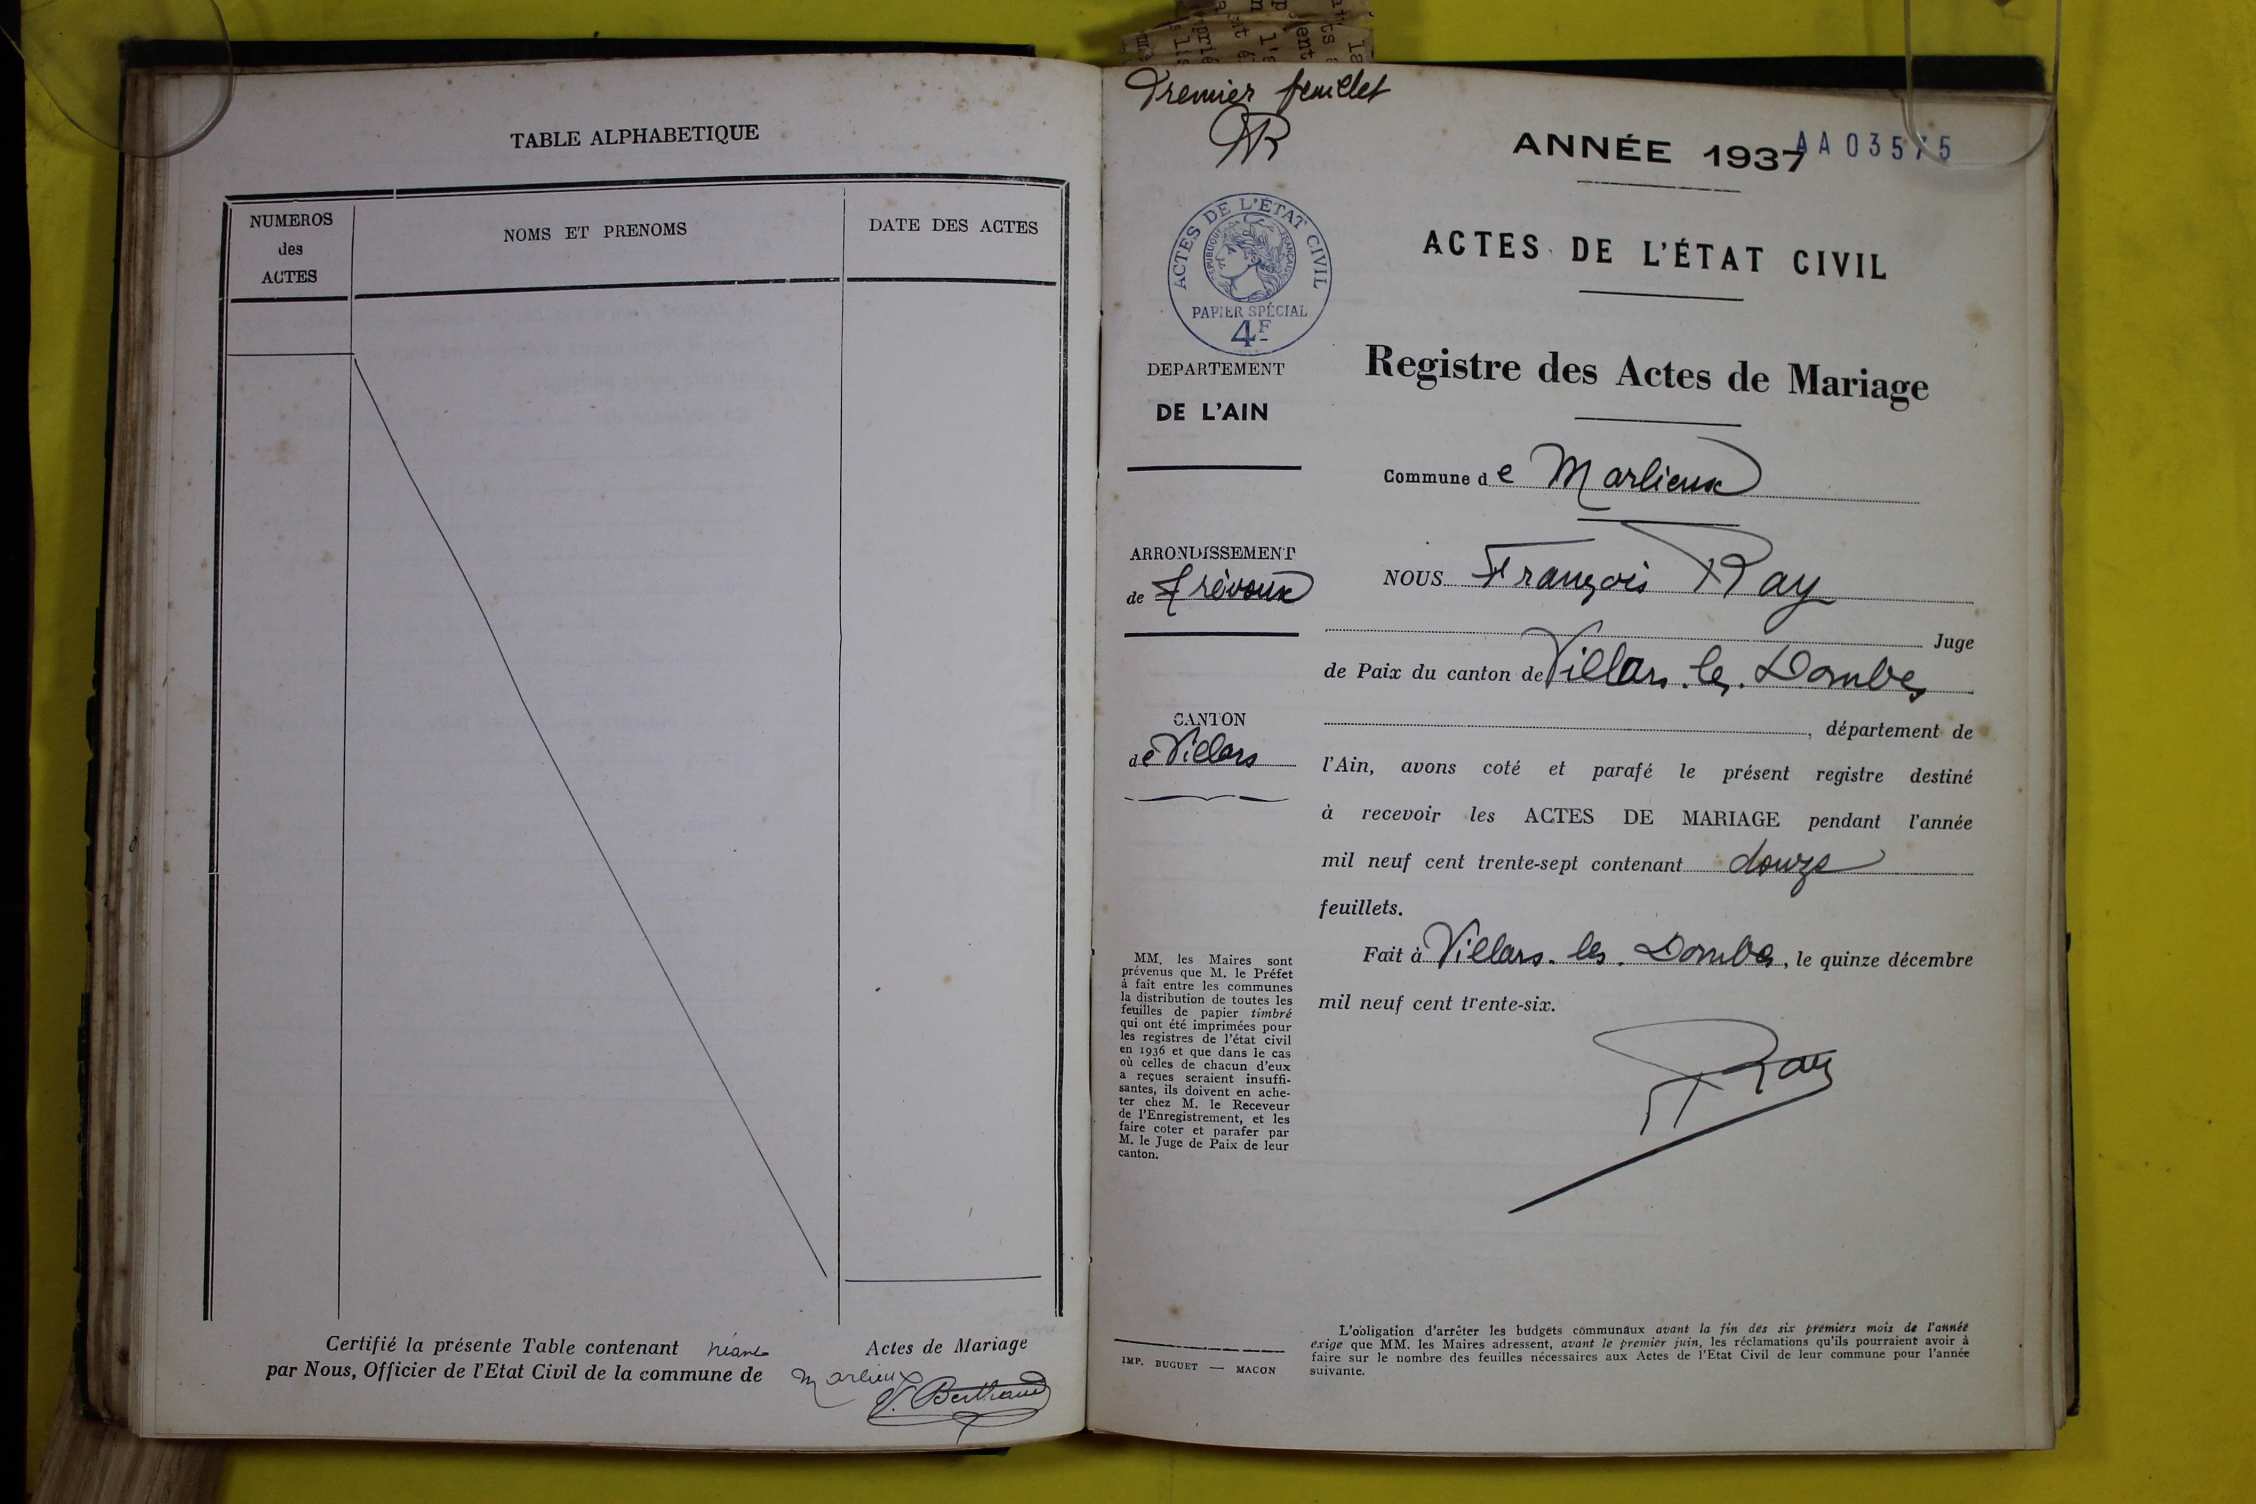 TABLE ALPHABETIQUE
NUMEROS
des
ACTES
NOMS ET PRENOMS
DATE DES ACTES
Certifié la présente Table contenant néant Actes de Mariage
par Nous, Officier de l'Etat Civil de la commune de Marlieux
V. Berthaud
Premier feuillet
ANNÉE 1937
ACTES DE L'ÉTAT CIVIL
RÉPUBLIQUE FRANÇAISE
PAPIER SPÉCIAL
4F
ACTES DE L'ÉTAT CIVIL
Registre des Actes de Mariage
DEPARTEMENT
DE L'AIN
Commune de Marlieux
ARRONDISSEMENT
de Trévoux
CANTON
de Villars
NOUS François Ray
Juge
de Paix du canton de Villars-les-Dombes
, département de
l'Ain, avons coté et parafé le présent registre destiné
à recevoir les ACTES DE MARIAGE pendant l'année
mil neuf cent trente-sept contenant douze
feuillets.
Fait à Villars-les-Dombes, le quinze décembre
mil neuf cent trente-six.
Ray
MM. les Maires sont
prévenus que M. le Préfet
à fait entre les communes
la distribution de toutes les
feuilles de papier timbré
qui ont été imprimées pour
les registres de l'état civil
en 1936 et que dans le cas
où celles de chacun d'eux
a reçues seraient insuffi-
santes, ils doivent en ache-
ter chez M. le Receveur
de l'Enregistrement, et les
faire coter et parafer par
M. le Juge de Paix de leur
canton.
IMP. BUGUET — MACON
L'obligation d'arrêter les budgets communaux avant la fin des six premiers mois de l'année
exige que MM. les Maires adressent, avant le premier juin, les réclamations qu'ils pourraient avoir à
faire sur le nombre des feuilles nécessaires aux Actes de l'Etat Civil de leur commune pour l'année
suivante.